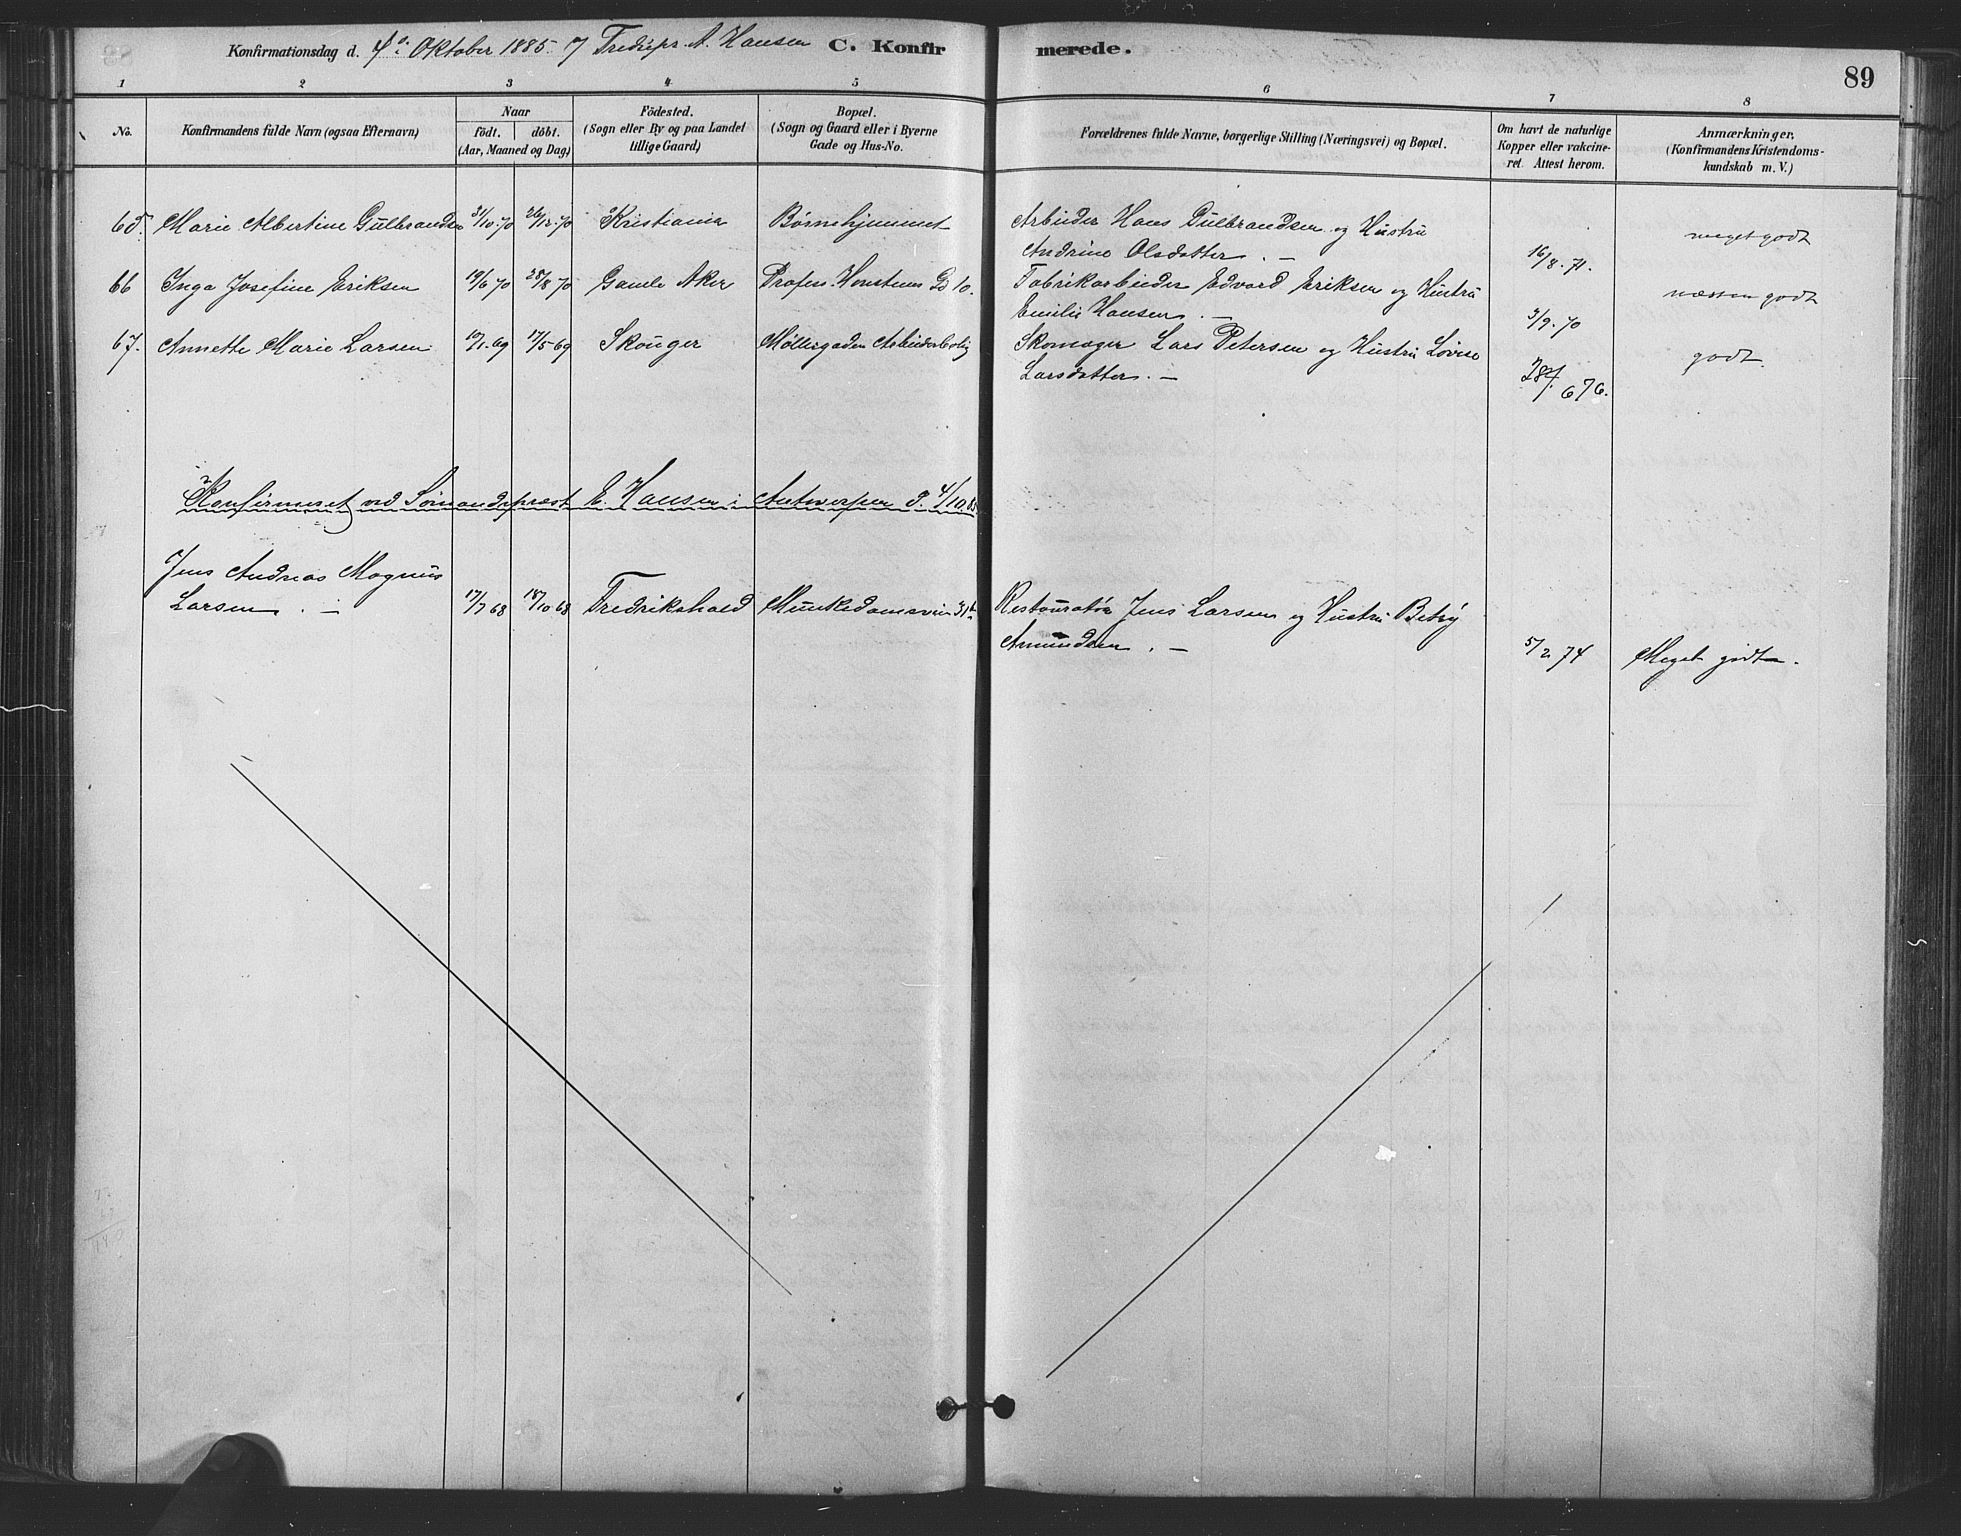 Konfirmationsdag d. 4de Oktober 1885. v/ Trediepr. A. Hansen C. Konfirmerede. 89
1 2 3 4 5 6 7 8
No.
Konfirmandens fulde Navn (ogsaa Efternavn)
Naar
födt. döbt.
(Aar, Maaned og Dag)
Födested.
(Sogn eller By og paa Landet
tillige Gaard)
Bopæl.
(Sogn og Gaard eller i Byerne
Gade og Hus-No.
Forældrenes fulde Navne, borgerlige Stilling (Næringsvei) og Bopæl.
Om havt de naturlige
Kopper eller vakcine-
ret. Attest herom.
Anmærkninger.
(Konfirmandens Kristendoms-
kundskab m. V.)
65. Marie Albertine Gulbrandsen 31/10.70 26/12.70 Kristiania Børnehjemmet Arbeider Hans Gulbrandsen og Hustru
Andrine Olsdatter. — 16/8.71. meget godt
66 Inga Josefine Eriksen 19/6 70 28/8 70 Gamle Aker Profes. Gd 10. Fabrikarbeider Edvard Eriksen og Hustru
Emilie Hansen. — 3/9.70 næsten godt
67. Annette Marie Larsen. 10/1.69 17/5 69 Skouger Møllergaden Arbeiderbolig Skomager Lars Petersen og Hustru Lovise
Larsdatter. — 676. godt.
Konfirmeret ved Sømandspræst E. Hansen i Antwerpen d. 4/10.85
Jens Andreas Magnus
Larsen. — 17/7 68 18/10 68 Fredrikshald Munkedamsveien Restauratør Jens Larsen og Hustru Betsy
Amundsen. — 5/2 74 Meget godt.